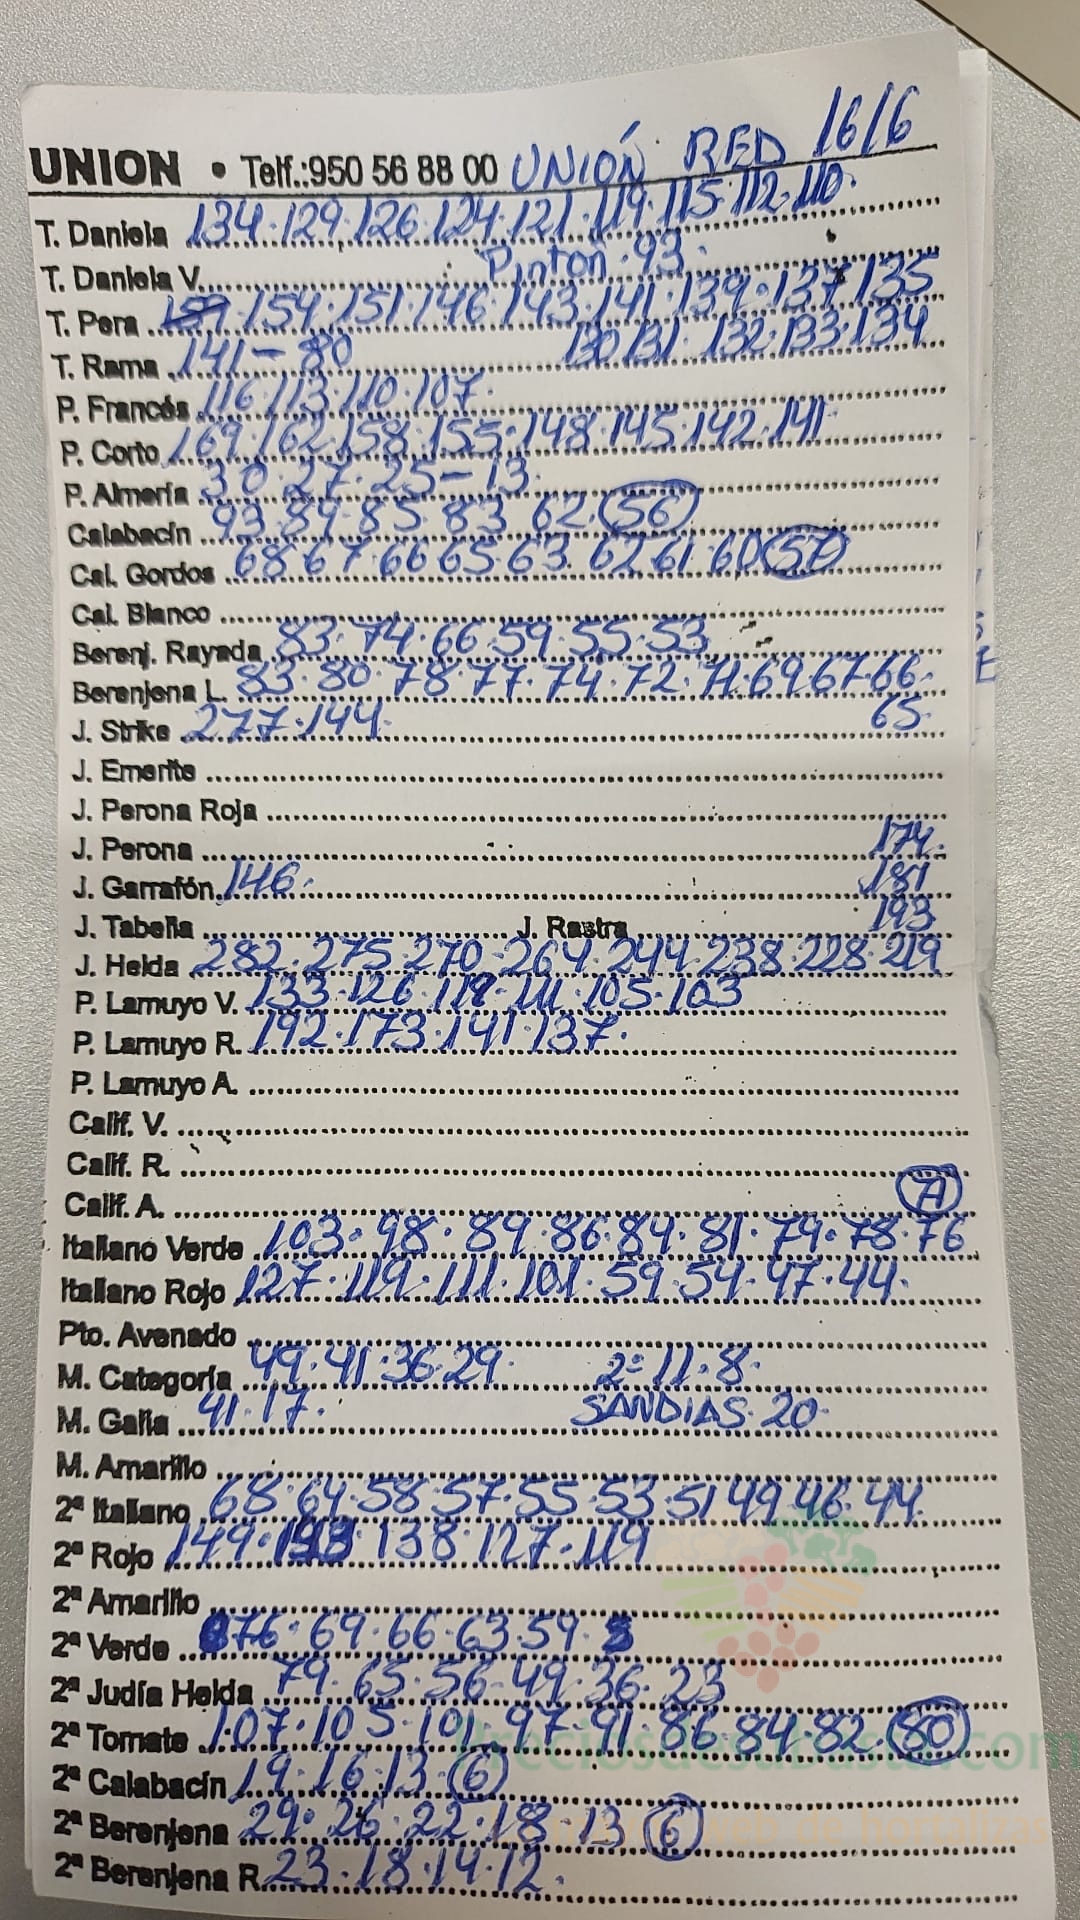 UNION • Telf.:950 56 88 00 UNIÓN RED 16/6
T. Daniela 134·129·126·124·121·119·115·112·110·
T. Daniela V. Pinton·93·
T. Pera 154·151·146·143·141·139·137·135
T. Rama 141-80 130 131·132·133·134
P. Francés 116·113·110·107·
P. Corto 169·162·158·155·148·145·142·141
P. Almería 30·27·25-13·
Calabacín 93·89·85·83·62·56
Cal. Gordos 68·67·66·65·63·62·61·60·57
Cal. Blanco
Berenj. Rayada 83·74·66·59·55·53
Berenjena L. 83·80·78·77·74·72·71·69·67·66·
J. Strike 277·144· 65·
J. Emerite
J. Perona Roja
J. Perona 174·
J. Garrafón 146· 181
J. Tabeña J. Rastra 193
J. Helda 282·275·270·264·244·238·228·219
P. Lamuyo V. 133·126·118·111·105·103
P. Lamuyo R. 192·173·141·137·
P. Lamuyo A.
Calif. V.
Calif. R.
Calif. A. 71
Italiano Verde 103·98·89·86·84·81·79·78·76
Italiano Rojo 127·119·111·101·59·54·47·44·
Pto. Avenado
M. Categoría 49·41·36·29· 2ª 11·8·
M. Galia 41·17· SANDIAS·20·
M. Amarillo
2ª Italiano 68·64·58·57·55·53·51 49·46·44
2ª Rojo 149· 138·127·119
2ª Amarillo
2ª Verde 76·69·66·63·59·
2ª Judía Helda 79·65·56·49·36·23
2ª Tomate 107·105·101·97·91·86·84·82·80
2ª Calabacín 19·16·13·6
2ª Berenjena 29·26·22·18·13 6
2ª Berenjena R. 23·18·14·12·